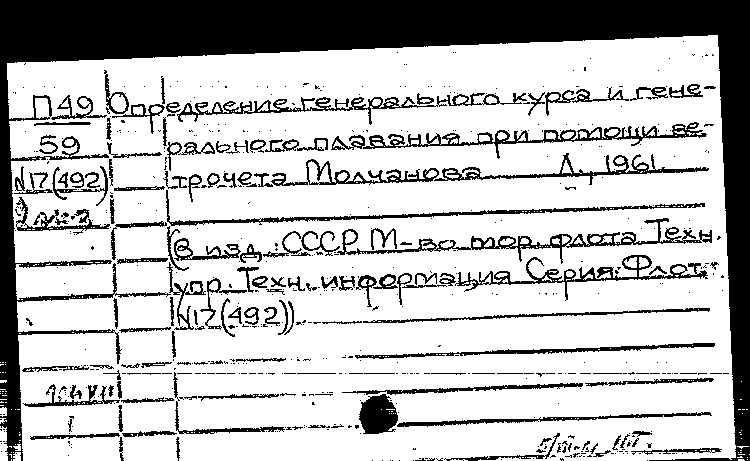 П49 Определение генерального курса и гене-
59 рального плавания при помощи ве-
N17(492) трочета Молчанова Л., 1961.
2 экз
(В изд.: СССР. М-во мор. флота. Техн.
упр. Техн. информация. Серия: Флот.
N17(492))